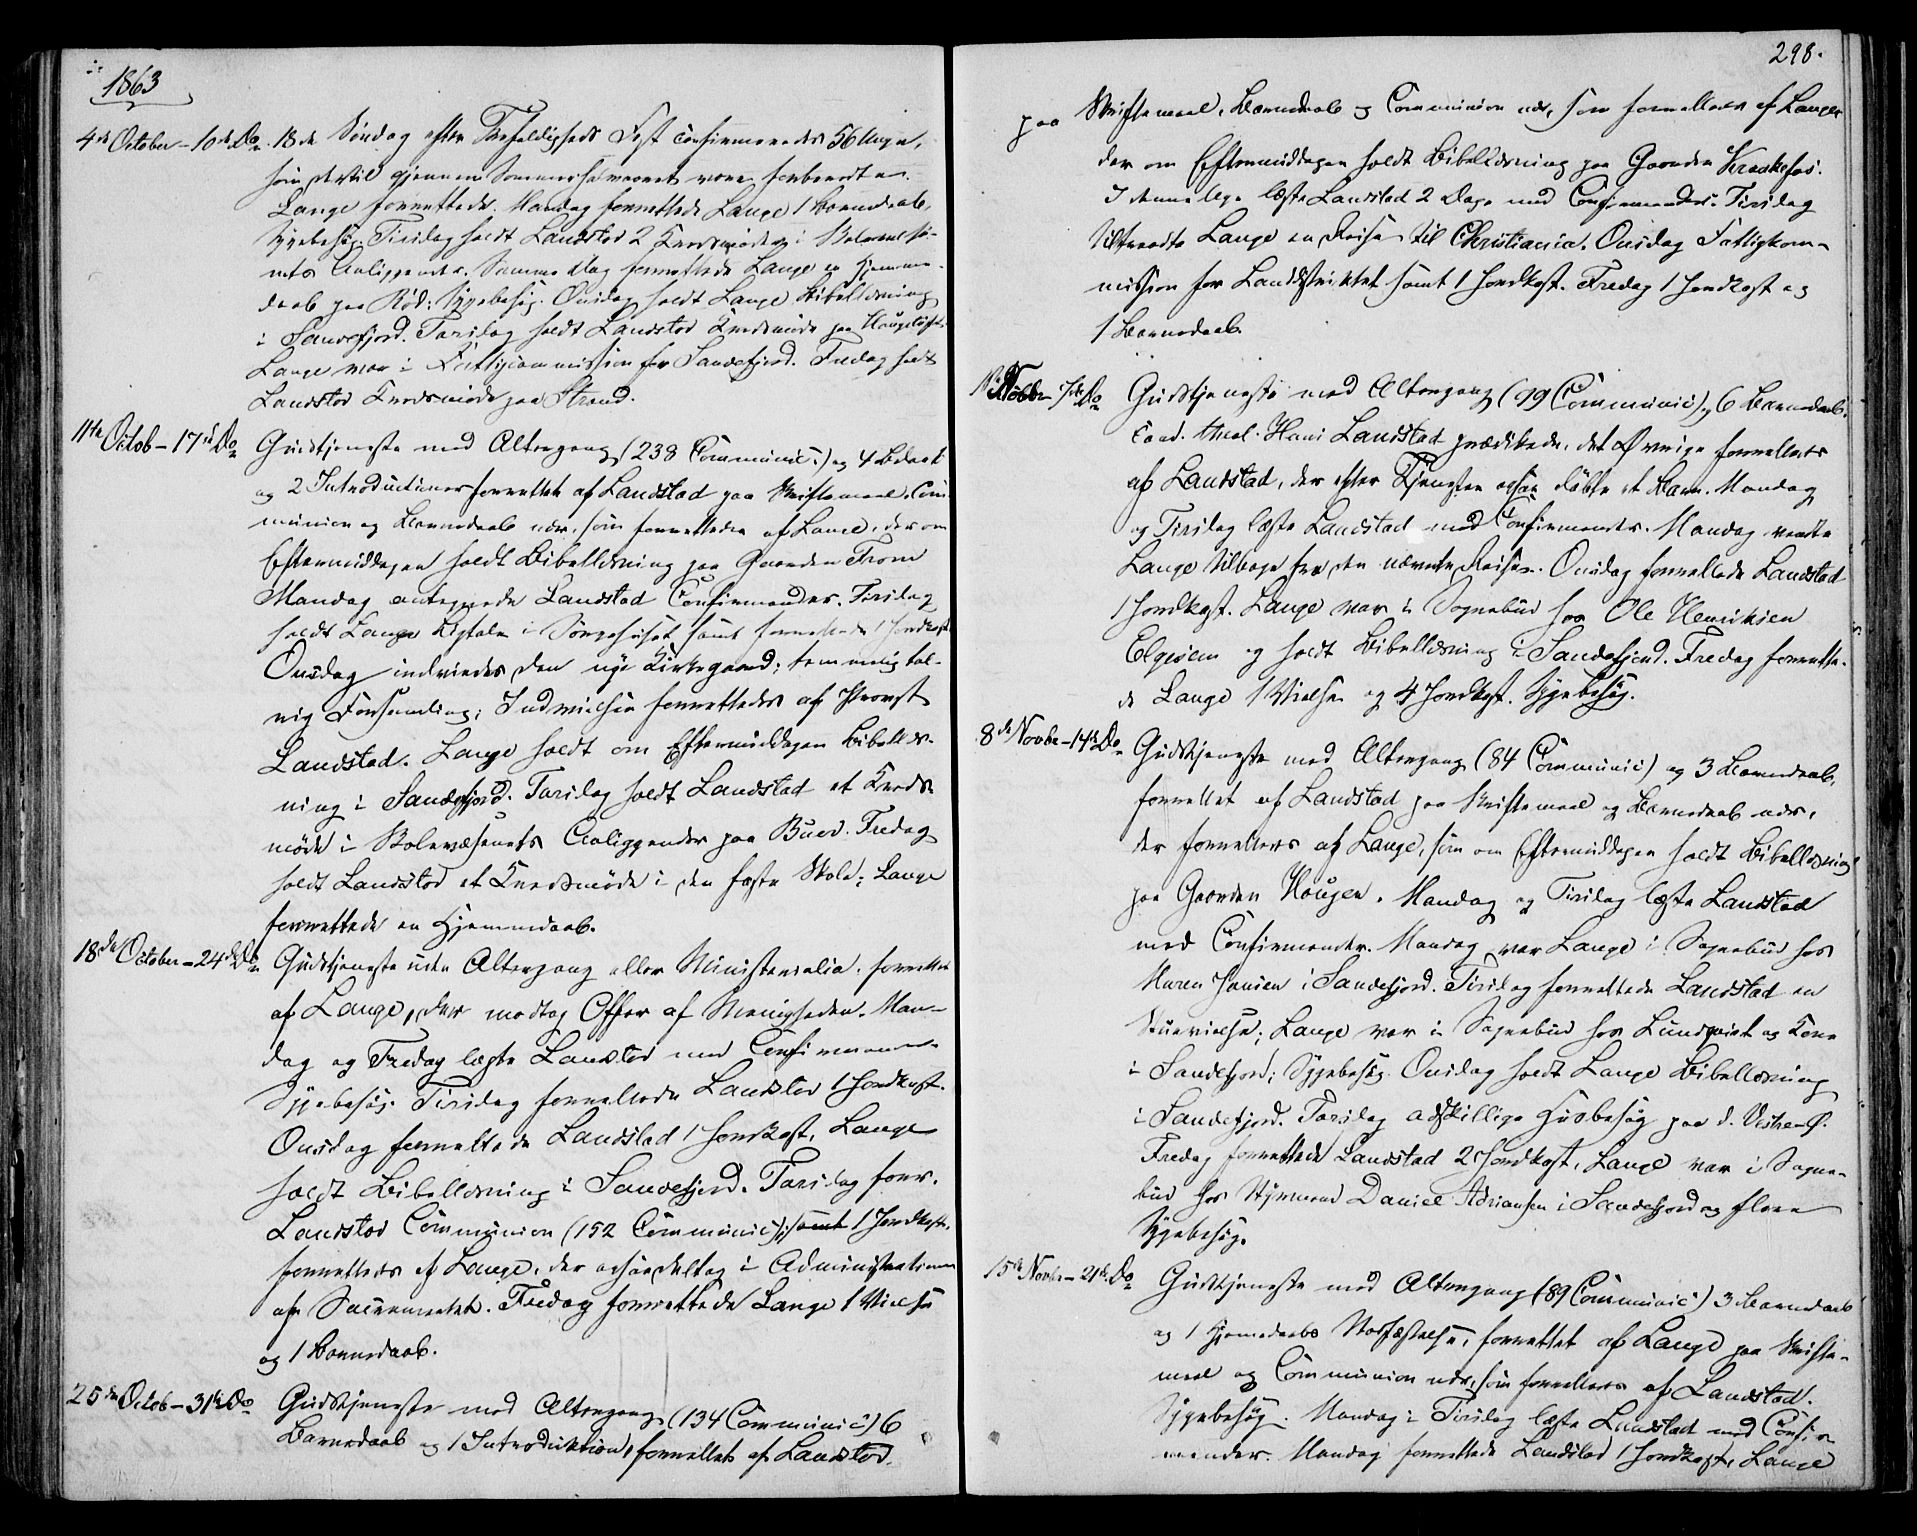 1863
4de October – 10de Do. 18de Søndag efter Trefoldigheds Fest confirmeredes 56 Unge,
som dertil gjennem Sommerhalvaaret vare forberedte.
Lange forrettede. Mandag forrettede Lange 1 Barnedaab,
Sygebesøg. Tirsdag holdt Landstad 2 Kredsmøder i Skolevæse-
nets Anliggender. Samme Dag forrettede Lange en Hjemme-
daab paa Rød; Sygebesøg. Onsdag holdt Lange Bibellæsning
i Sandefjord. Torsdag holdt Landstad Kredsmøde paa
Lange var i Fattigcommission for Sandefjord. Fredag holdt
Landstad Kredsmøde paa Strand.
11te Octob – 17de Do Gudstjeneste med Altergang (238 Communic:) og 4 Bdaab
og 2 Introductioner forrettet af Landstad paa Skriftemaal, Com
munion og Barnedaab nær, som forrettedes af Lange, der om
Eftermiddagen holdt Bibellæsning paa Gaarden From
Mandag antegnede Landstad Confirmander. Tirsdag
holdt Lange Ligtale i Sørgehuset samt forrettede 1 Jordkast
Onsdag indviedes den nye Kirkegaard; temmelig tal-
rig Forsamling; Indvielsen forrettedes af Provst
Landstad. Lange holdt om Eftermiddagen Bibellæs-
ning i Sandefjord. Torsdag holdt Landstad et Kreds-
møde i Skolevæsenets Anliggender paa Buer. Fredag
holdt Landstad et Kredsmøde i den faste Skole; Lange
forrettede en Hjemmedaab.
18de October – 24de Do Gudstjeneste uden Altergang eller Ministerialia, forrettet
af Lange, der modtog Offer af Menigheden. Man-
dag og Fredag læste Landstad med Confirmander
Sygebesøg. Tirsdag forrettede Landstad 1 Jordkast.
Onsdag forrettede Landstad 1 Jordkast, Lange
holdt Bibellæsning i Sandefjord. Torsdag forr.
Landstad Communion (152 Communic); samt 1 Jordkast,
forrettedes af Lange, der ogsaa deltog i Administrationen
af Sacramentet. Fredag forrettede Lange 1 Vielse
og 1 Barnedaab.
25de Octob – 31te Do Gudstjeneste med Altergang (134 Communic:) 6
Barnedaab og 1 Introduktion, forrettet af Landstad.
298.
paa Skriftemaal, Barnedaab og Communion nær, som forrettedes af Lange
der om Eftermiddagen holdt Bibellæsning paa Gaarden Krakkefos.
I denne Uge læste Landstad 2 Dage med Confirmander. Tirsdag
tiltraadte Lange en Reise til Christiania. Onsdag Fattigkom-
mission for Landdistriktet samt 1 Jordkast. Fredag 1 Jordkast og
1 Barnedaab.
1ste Novbr – 7de Do Gudstjeneste med Altergang (99 Communic), 6 Barnedaab.
Cand. theol. Hans Landstad prædikede, det Øvrige forrettedes
af Landstad, der efter Tjenesten ogsaa døbte et Barn. Mandag
og Tirsdag læste Landstad med Confirmander. Mandag vendte
Lange tilbage fra den nævnte Reise. Onsdag forrettede Landstad
1 Jordkast. Lange var i Sognebud hos Ole Henriksen
Elgesem og holdt Bibellæsning i Sandefjord. Fredag forrette-
de Lange 1 Vielse og 4 Jordkast. Sygebesøg.
8de Novbr – 14de Do Gudstjeneste med Altergang (84 Communic:) og 3 Barnedaab,
forrettet af Landstad paa Skriftemaal og Barnedaab nær,
der forrettedes af Lange, som om Eftermiddagen holdt Bibellæsning
paa Gaarden Hougen. Mandag og Tirsdag læste Landstad
med Confirmander. Mandag var Lange i Sognebud hos
Maren Jansen i Sandefjord. Tirsdag forrettede Landstad en
Stuevielse; Lange var i Sognebud hos Lundqvist og Kone
i Sandefjord; Sygebesøg. Onsdag holdt Lange Bibellæsning
i Sandefjord. Torsdag adskillige Husbesøg paa d. Vestre Ø.
Fredag forrettede Landstad 2 Jordkast, Lange var i Sogne-
bud hos Styrmand Daniel Adriansen i Sandefjord og flere
Sygebesøg.
15de Novbr – 21de Do Gudstjeneste med Altergang (89 Communic:) 3 Barnedaab
og 1 Hjemedaabs Stadfæstelse, forrettet af Lange paa Skrifte-
maal og Communion nær, som forrettedes af Landstad.
Sygebesøg. Mandag & Tirsdag læste Landstad med Confir-
mander. Mandag forrettede Landstad 1 Jordkast, Lange